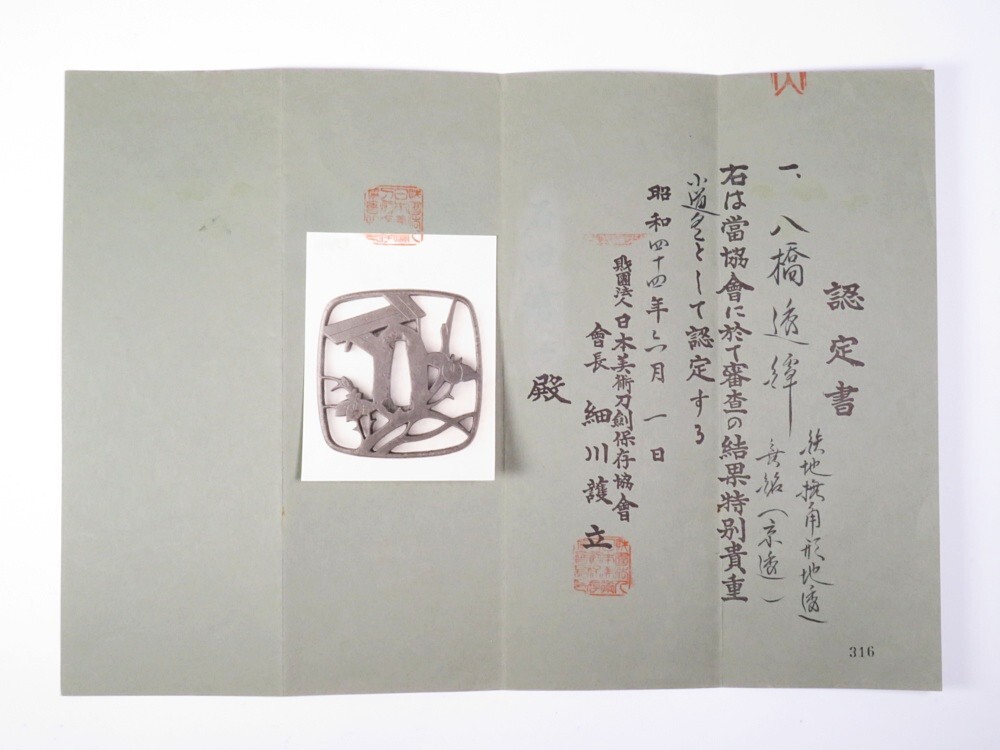 認定書
鉄地撫角形地透
一、八橋透鐔 無銘(京透)
右は當協會に於て審査の結果特別貴重
小道具として認定する
昭和四十四年六月一日
財團法人日本美術刀劍保存協會
會長 細川護立
殿
316